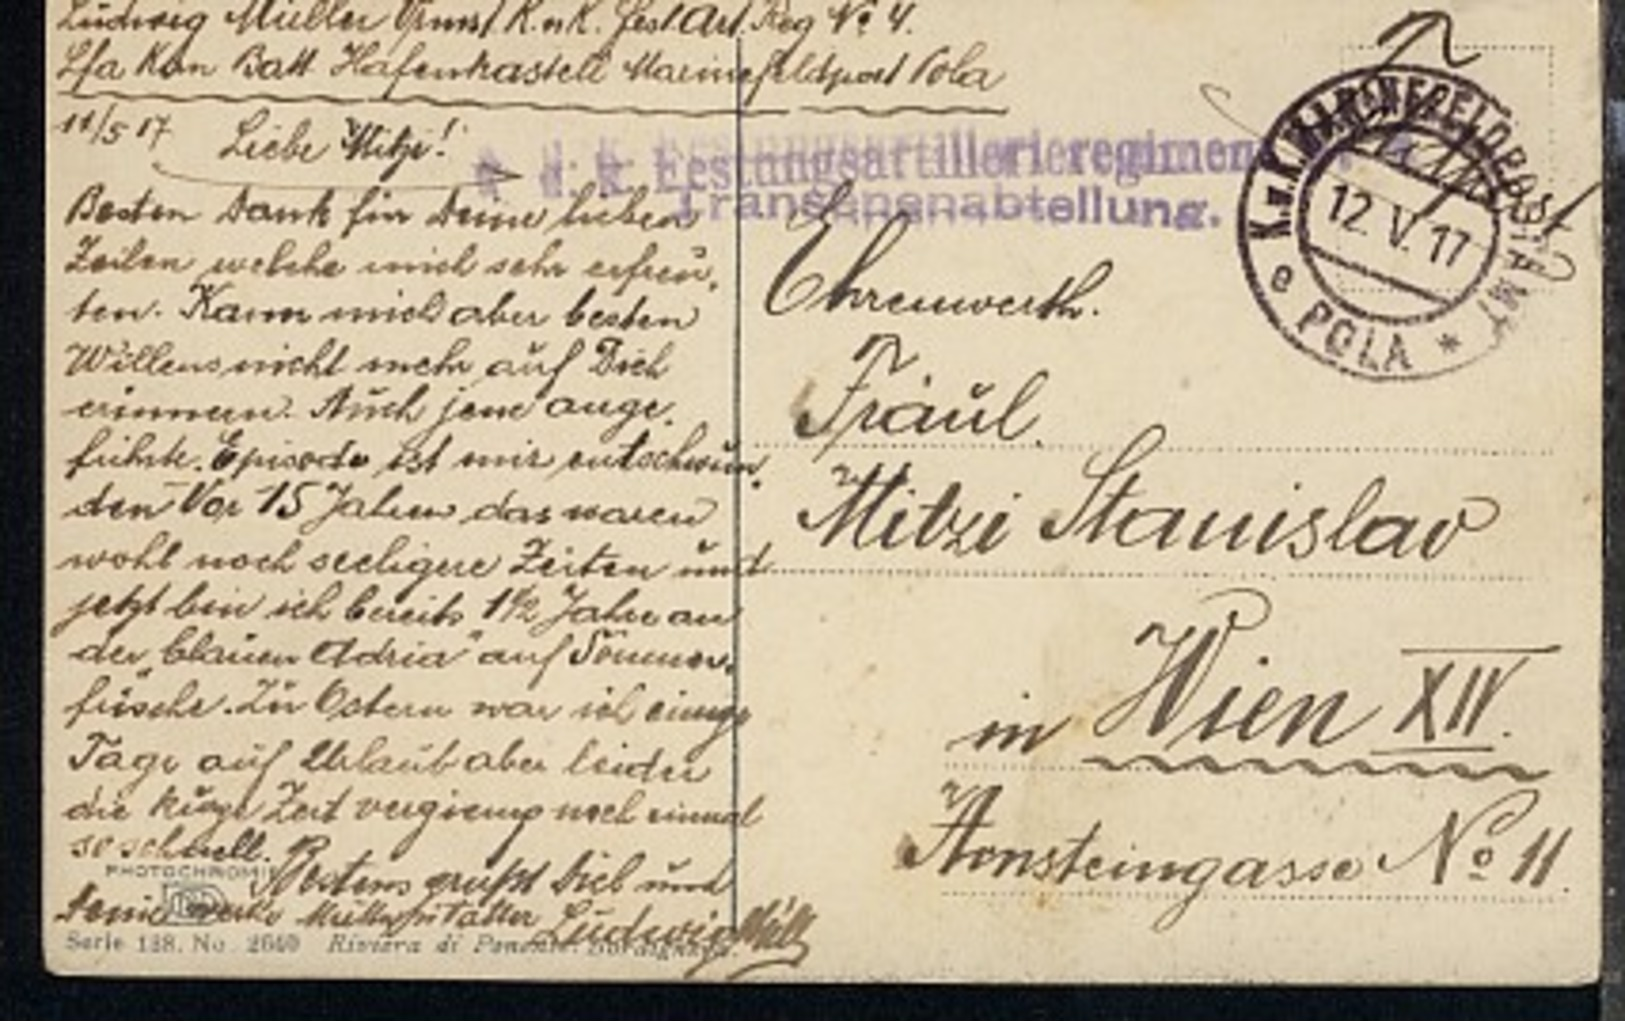 Ludwig Müller K.u.K. Fest Art. Reg No 4.
Batt Hafenkastell Marinefeldpost Pola
11/5 17
Liebe Mitzi!
Festungsartillerieregiment
Transenenabteilung.
K.u.K. MARINEFELDPOSTAMT
12. V. 17
e POLA *
Besten Dank für Deine lieben
Zeilen welche mich sehr erfreu-
ten. Kann mich aber besten
Willens nicht mehr auf Dich
erinnern. Auch jene ange-
führte Episode ist mir entschwun-
den Vor 15 Jahren das waren
wohl noch seeligere Zeiten und
jetzt bin ich bereits 1½ Jahre an
der „blauen Adria" auf Sommer-
frische. Zu Ostern war ich einige
Tage auf Urlaub aber leider
die kurze Zeit vergieng noch einmal
so schnell.
Bestens grüßt Dich und
Deine Mutter Ludwig Müll
PHOTOCHROMIE
Serie 138. No. 2640 Riviera di Ponente. Bordighera.
Ehrenwerth.
Fräul.
Mitzi Stanislav
in Wien XIV.
Arnsteingasse No 11.